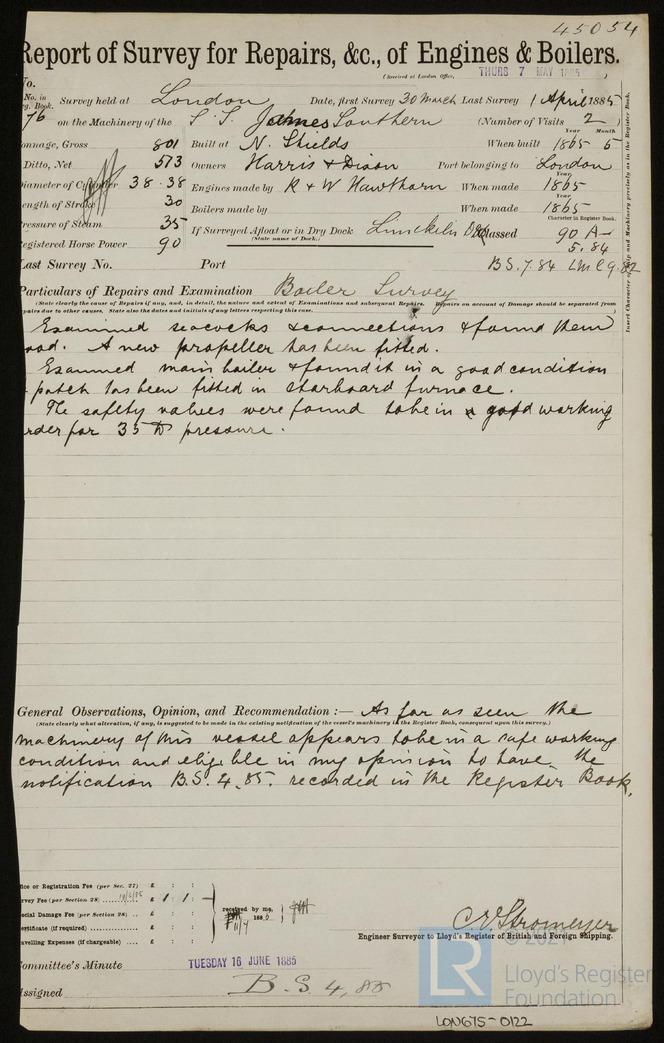 45054
Report of Survey for Repairs, &c., of Engines & Boilers.
(Received at London Office, THURS 7 MAY 1885 )
No.
No. in Survey held at London Date, first Survey 30 March Last Survey 1 April 1885
g. Book.
76 on the Machinery of the S.S. James Southern (Number of Visits 2
Year Month
onnage, Gross 801 Built at N. Shields When built 1865 5
Ditto, Net 513 Owners Harris & Dixon Port belonging to London
Year
Diameter of Cylinder 38 . 38 Engines made by R & W Hawthorn When made 1865
Year
ength of Stroke 30 Boilers made by When made 1865
Character in Register Book.
ressure of Steam 35 If Surveyed Afloat or in Dry Dock Classed 90 A-
(State name of Dock.)
egistered Horse Power 90 5.84
Last Survey No. Port B.S. 7.84 LMC 9.82
Insert Character of Ship and Machinery precisely as in the Register Book.
Particulars of Repairs and Examination Boiler Survey
(State clearly the cause of Repairs if any, and, in detail, the nature and extent of Examinations and subsequent Repairs. Repairs on account of Damage should be separated from
pairs due to other causes. State also the dates and initials of any letters respecting this case.
Examined seacocks & connections & found them
ood. A new propeller has been fitted.
Examined main boiler & found it in a good condition
patch has been fitted in starboard furnace.
The safety valves were found to be in a good working
rder for 35 lb pressure.
General Observations, Opinion, and Recommendation :— As far as seen the
(State clearly what alteration, if any, is suggested to be made in the existing notification of the vessel's machinery in the Register Book, consequent upon this survey.)
machinery of this vessel appears to be in a safe working
condition and eligible in my opinion to have the
notification B.S. 4.85. recorded in the Register Book.
ice or Registration Fee (per Sec. 27) £ : :
rvey Fee (per Section 28) £ 1 : 1 : -
ecial Damage Fee (per Section 28) £ : :
ertificate (if required) £ : :
avelling Expenses (if chargeable) £ : :
received by me,
188
C. E. Stromeyer
Engineer Surveyor to Lloyd's Register of British and Foreign Shipping.
Committee's Minute TUESDAY 16 JUNE 1885
Assigned B.S 4,85
LR
© 2021
Lloyd's Register
Foundation
LON675-0122